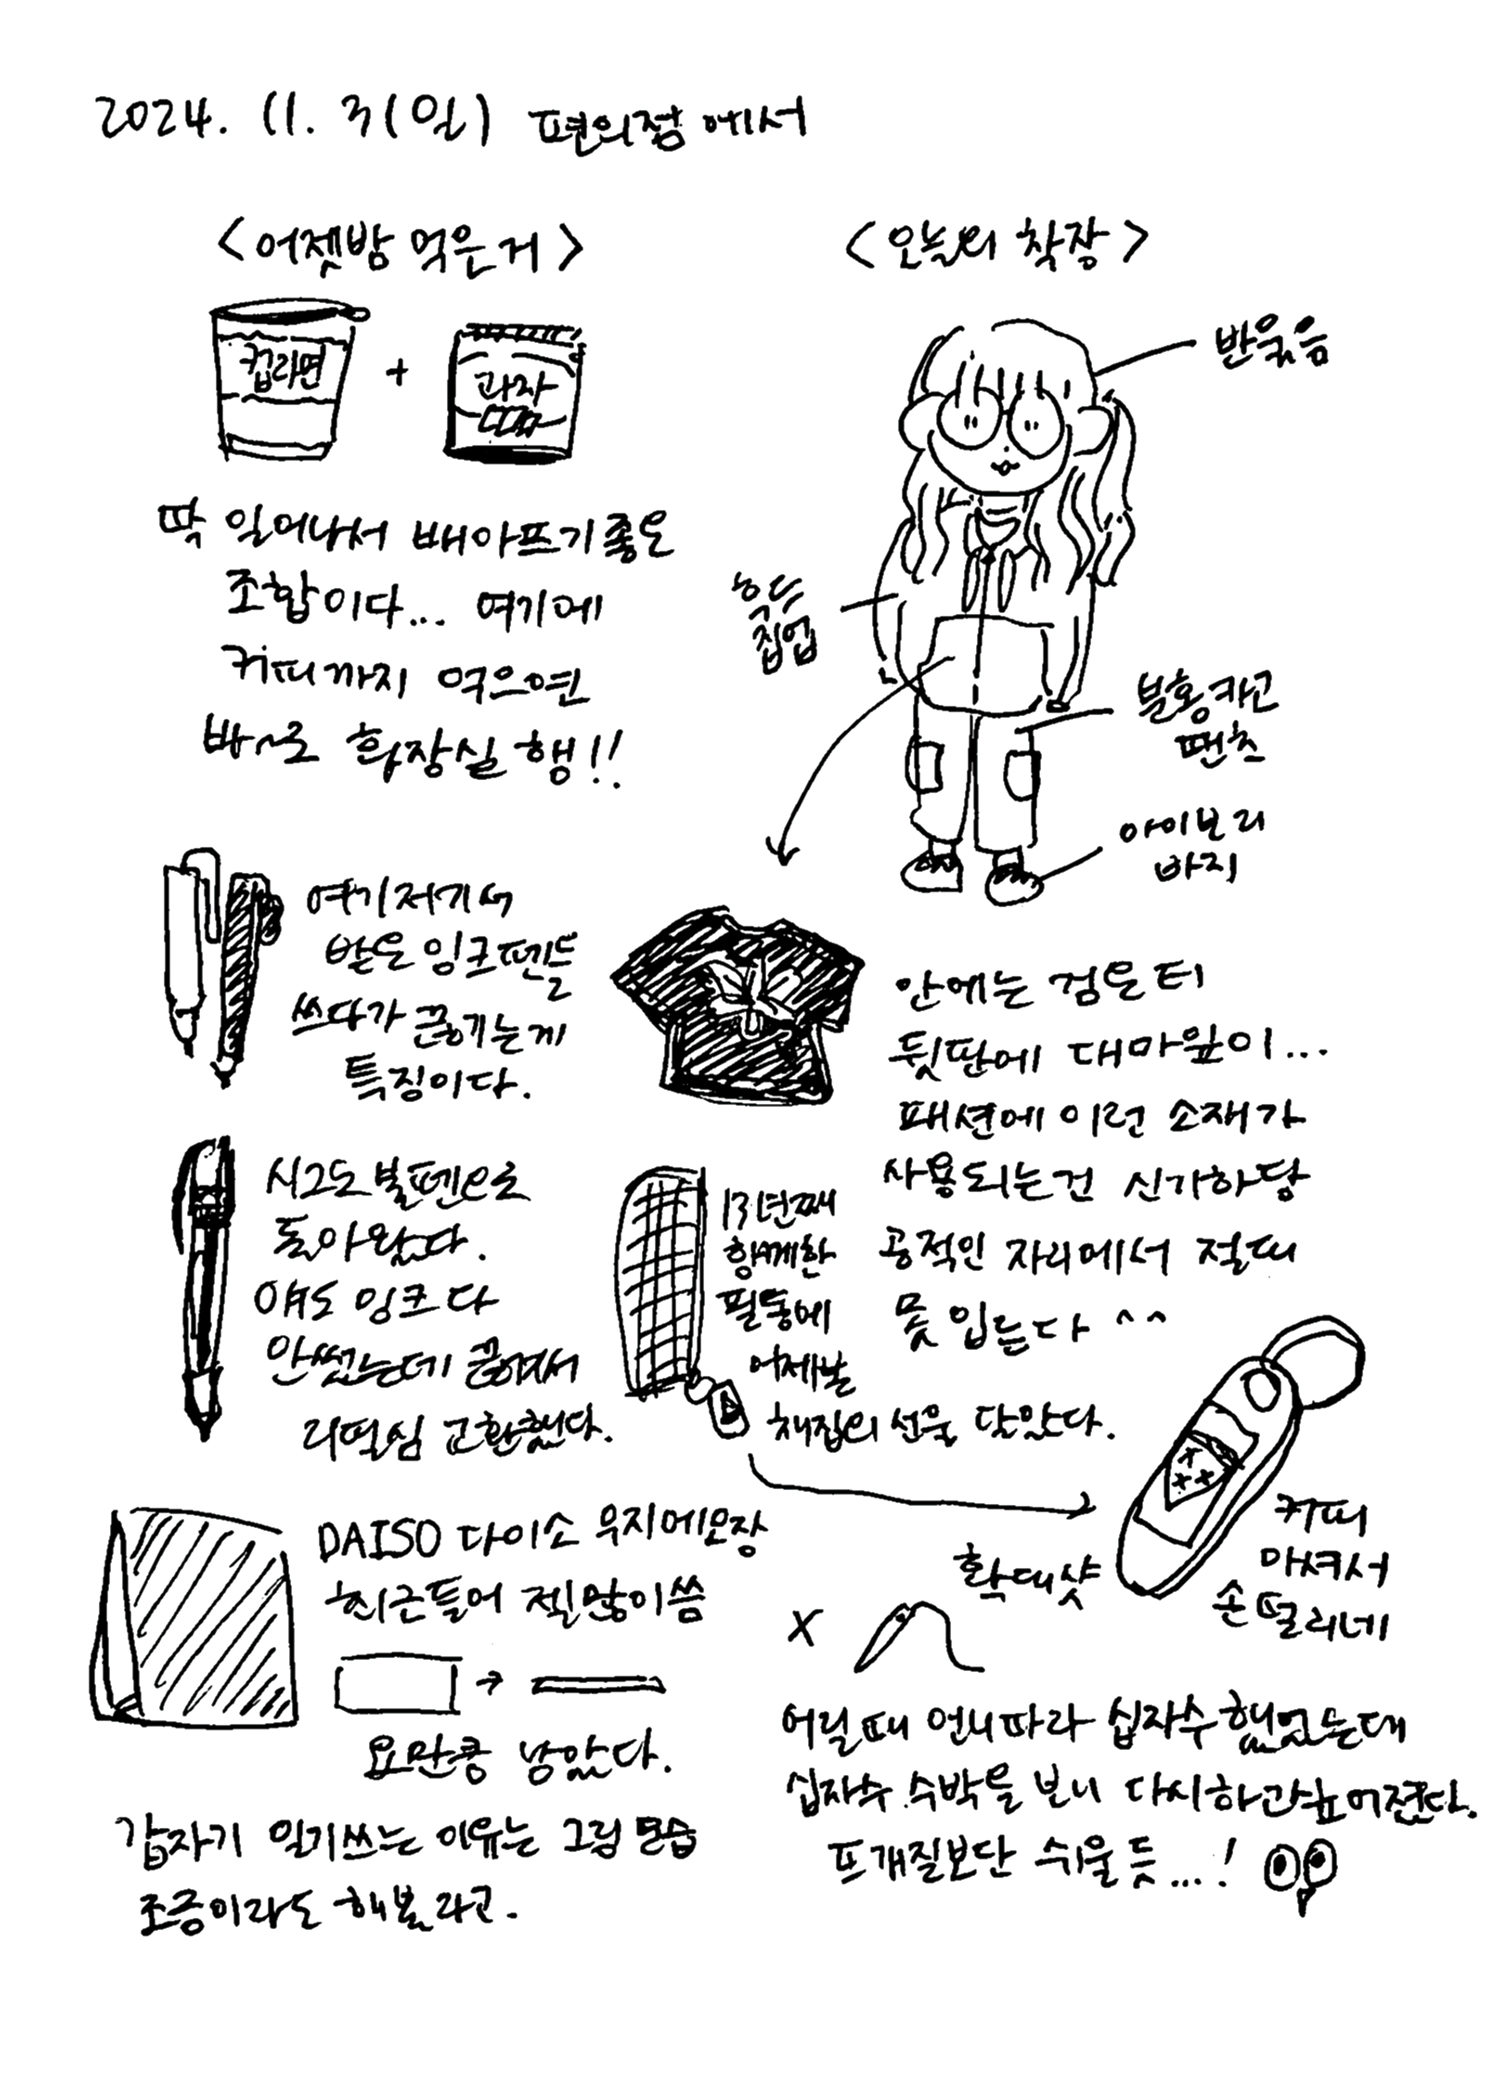 2024. 11. 3(일) 편의점에서
<어젯밤 먹은거>
컵라면 + 과자
딱 일어나서 배아프기좋은
조합이다... 여기에
커피까지 먹으면
바~로 화장실 행!!
<오늘의 착장>
반묶음
후드
집업
분홍카고
팬츠
아이보리
바지
여기저기서
받은 잉크펜들
쓰다가 끊기는게
특징이다.
안에는 검은티
뒷판에 대마잎이...
패션에 이런 소재가
사용되는건 신기하당
공적인 자리에서 절때
못입는다 ^^
시그노볼펜으로
돌아왔다.
얘도 잉크다
안썼는데 끊겨서
리필심 교환했다.
13년째
함께한
필통에
어제
의 선물 달았다.
확대샷
커피
마셔서
손떨리네
DAISO 다이소 무지메모장
최근들어 젤많이씀
→
요만큼 남았다.
갑자기 일기쓰는 이유는 그림 연습
조금이라도 해볼라고.
X
어릴때 언니따라 십자수했었는데
십자수 수박을 보니 다시하고싶어졌다.
뜨개질보단 쉬울듯...!